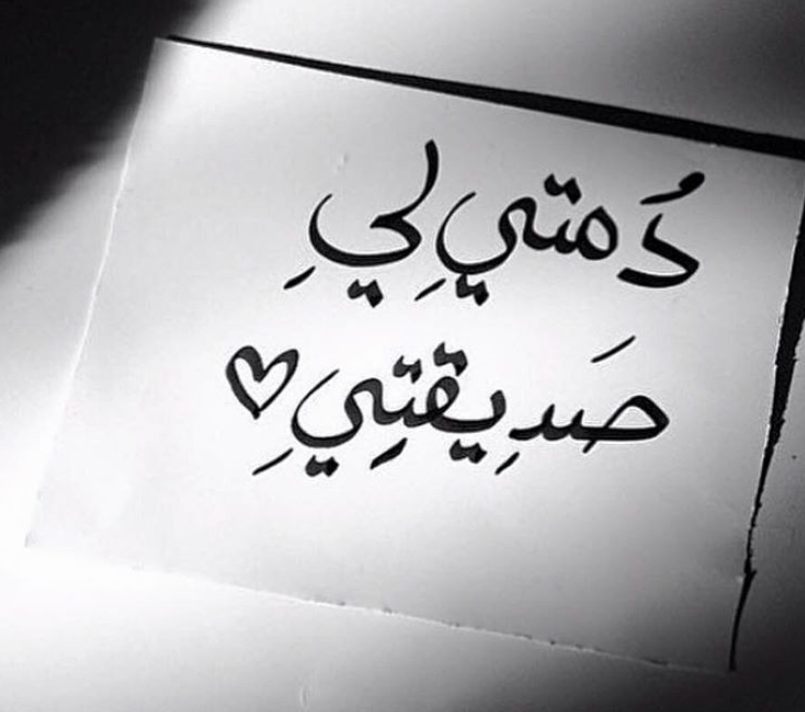 دُمتي لِيِ
صَدِيقتِيِ♥